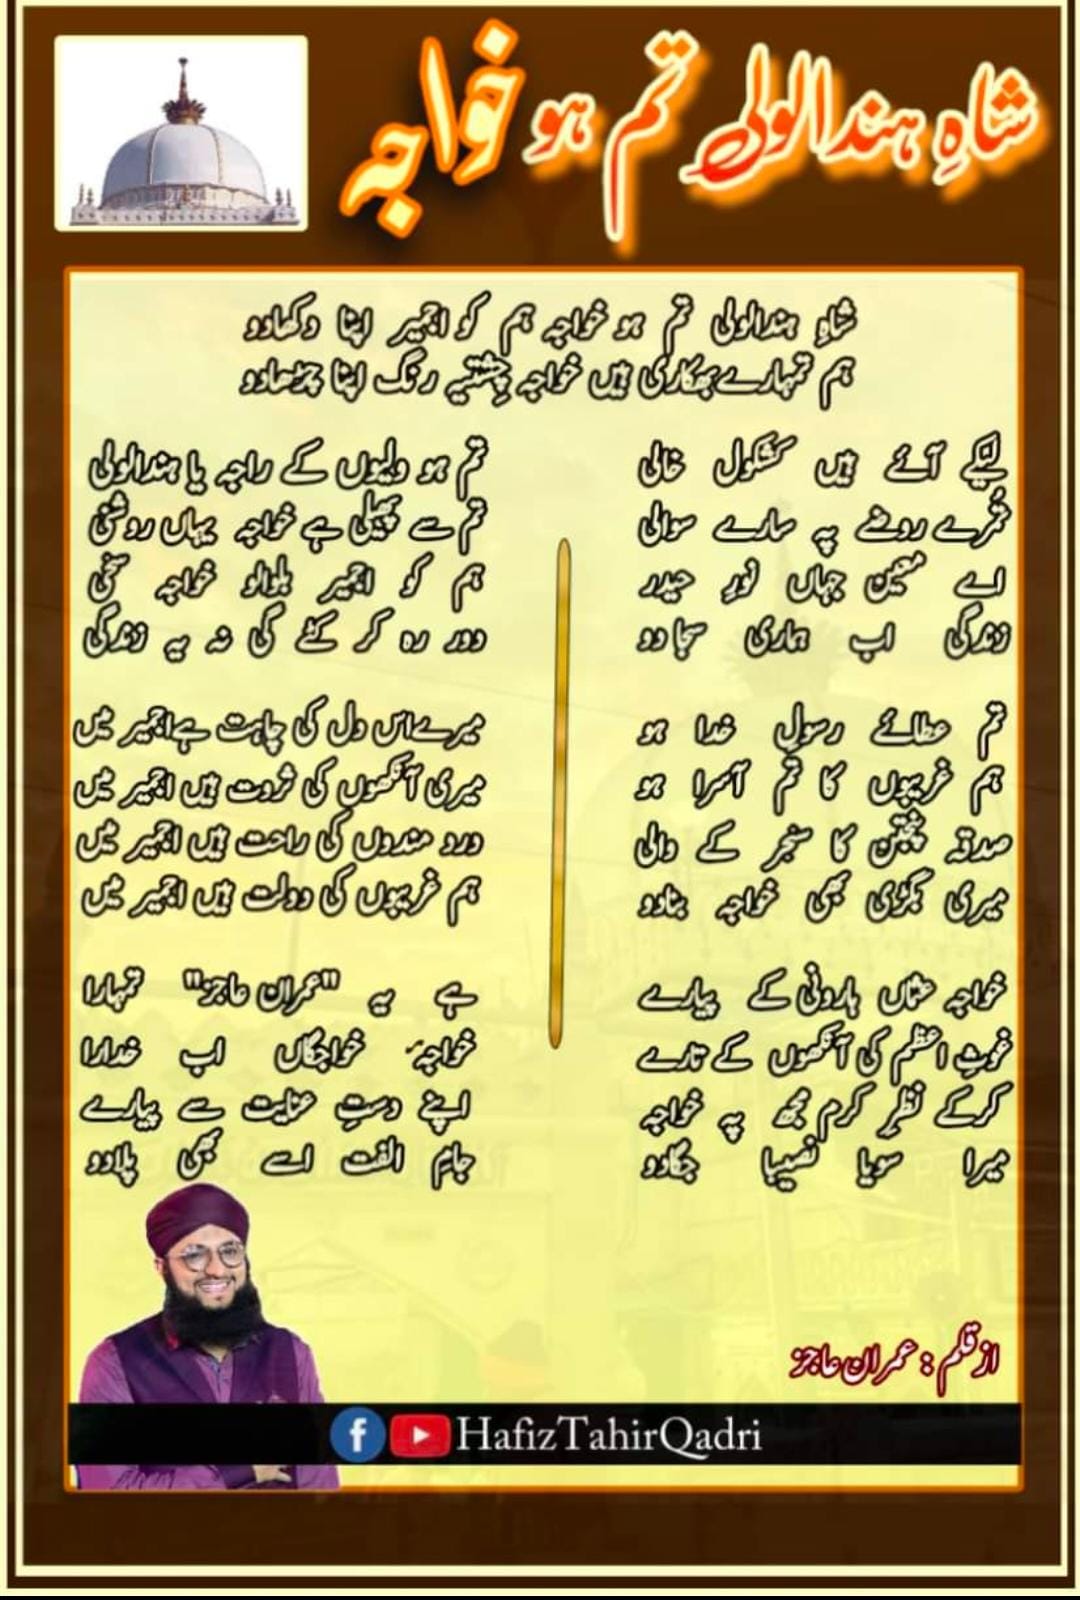 شاہِ ہندالولی تم ہو خواجہ
شاہِ ہندالولی تم ہو خواجہ ہم کو اجمیر اپنا دکھادو
ہم تمہارے بھکاری ہیں خواجہ چِشتیہ رنگ اپنا چڑھادو
لیکے آئے ہیں کشکول خالی
تُمرے روضے پہ سارے سوالی
اے معین جہاں نُورِ حیدر
زندگی اب ہماری سجا دو
تم عطائے رسولِ خدا ہو
ہم غریبوں کا تم آسرا ہو
صدقہ پنجتن کا سنجر کے والی
میری بگڑی بھی خواجہ بنادو
خواجہ عثماں ہارونی کے پیارے
غوثِ اعظم کی آنکھوں کے تارے
کرکے نظرِ کرم مجھ پہ خواجہ
میرا سویا نصیبا جگادو
تم ہو ولیوں کے راجہ یا ہندالولی
تم سے پھیلی ہے خواجہ یہاں روشنی
ہم کو اجمیر بلوالو خواجہ سخی
دور رہ کر کٹے گی نہ یہ زندگی
میرےاس دل کی چاہت ہےاجمیر میں
میری آنکھوں کی ثروت ہیں اجمیر میں
درد مندوں کی راحت ہیں اجمیر میں
ہم غریبوں کی دولت ہیں اجمیر میں
ہے یہ "عمران عاجز" تمہارا
خواجہٴ خواجگاں اب خدارا
اپنے دستِ عنایت سے پیارے
جامِ الفت اسے بھی پلادو
از قلم : عمران عاجز
HafizTahirQadri